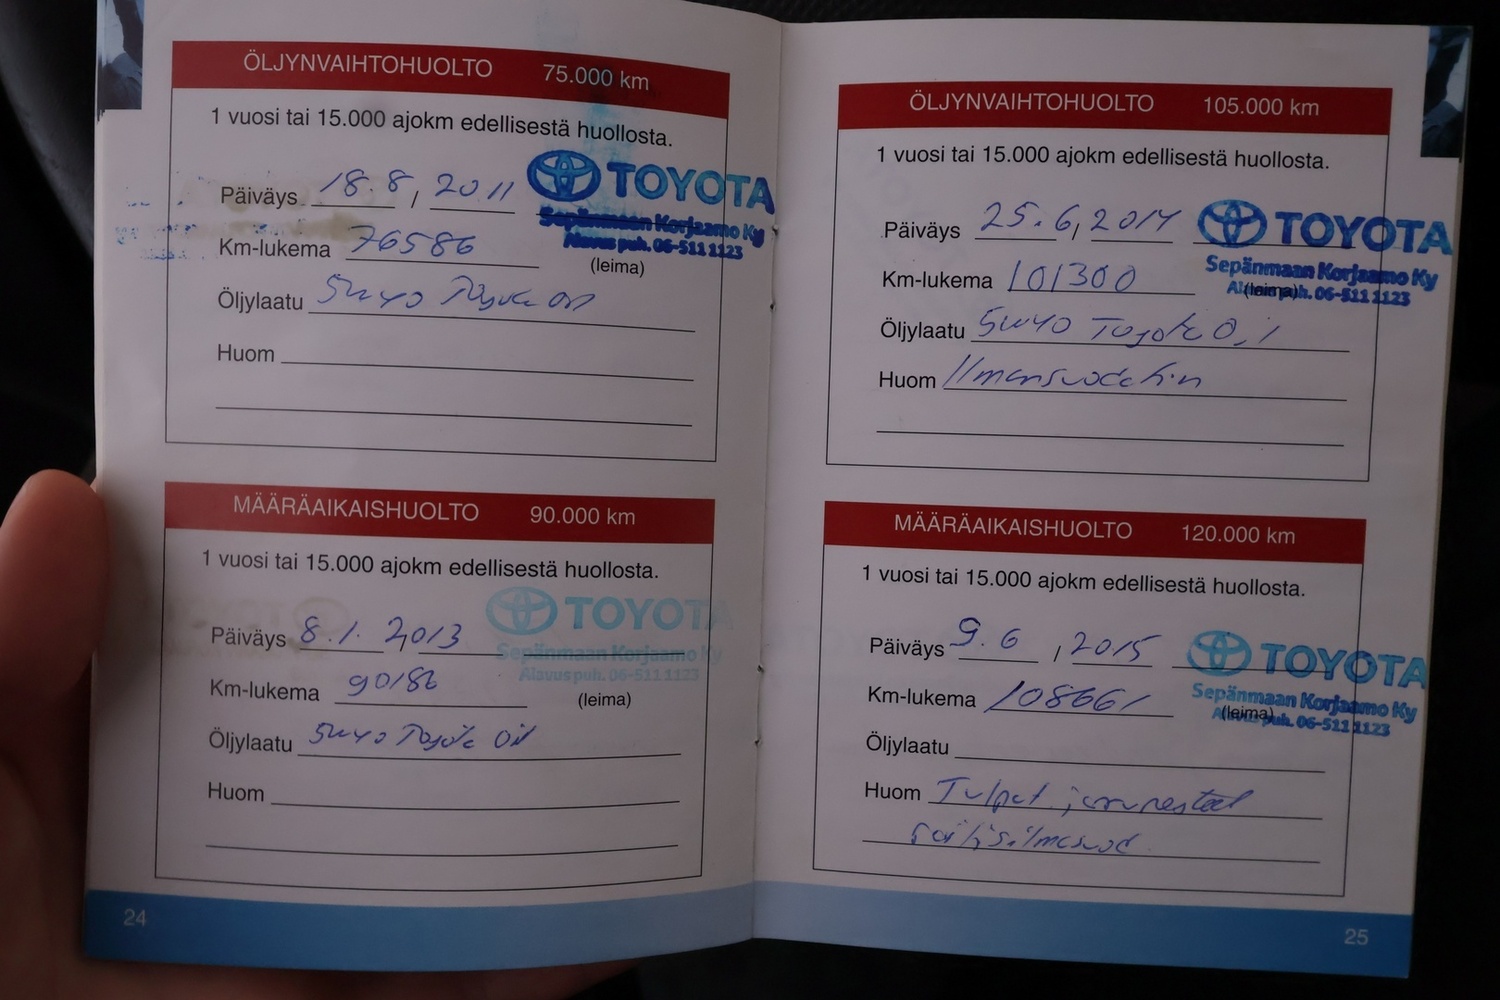 ÖLJYNVAIHTOHUOLTO 75.000 km
1 vuosi tai 15.000 ajokm edellisestä huollosta.
Päiväys 18.8, 2011
TOYOTA
Sepänmaan Korjaamo Ky
Alavus puh. 06-511 1123
Km-lukema 76586
(leima)
Öljylaatu 5W40 Toyota Oil
Huom
MÄÄRÄAIKAISHUOLTO 90.000 km
1 vuosi tai 15.000 ajokm edellisestä huollosta.
Päiväys 8.1. 2013
TOYOTA
Sepänmaan Korjaamo Ky
Alavus puh. 06-511 1123
Km-lukema 90186
(leima)
Öljylaatu 5W40 Toyota Oil
Huom
24
ÖLJYNVAIHTOHUOLTO 105.000 km
1 vuosi tai 15.000 ajokm edellisestä huollosta.
Päiväys 25.6, 2014
TOYOTA
Sepänmaan Korjaamo Ky
Alavus puh. 06-511 1123
Km-lukema 101300
(leima)
Öljylaatu 5W40 Toyota Oil
Huom Ilmansuodatin
MÄÄRÄAIKAISHUOLTO 120.000 km
1 vuosi tai 15.000 ajokm edellisestä huollosta.
Päiväys 9.6, 2015
TOYOTA
Sepänmaan Korjaamo Ky
Alavus puh. 06-511 1123
Km-lukema 108661
(leima)
Öljylaatu
Huom Tulpat jarrunesteet
25